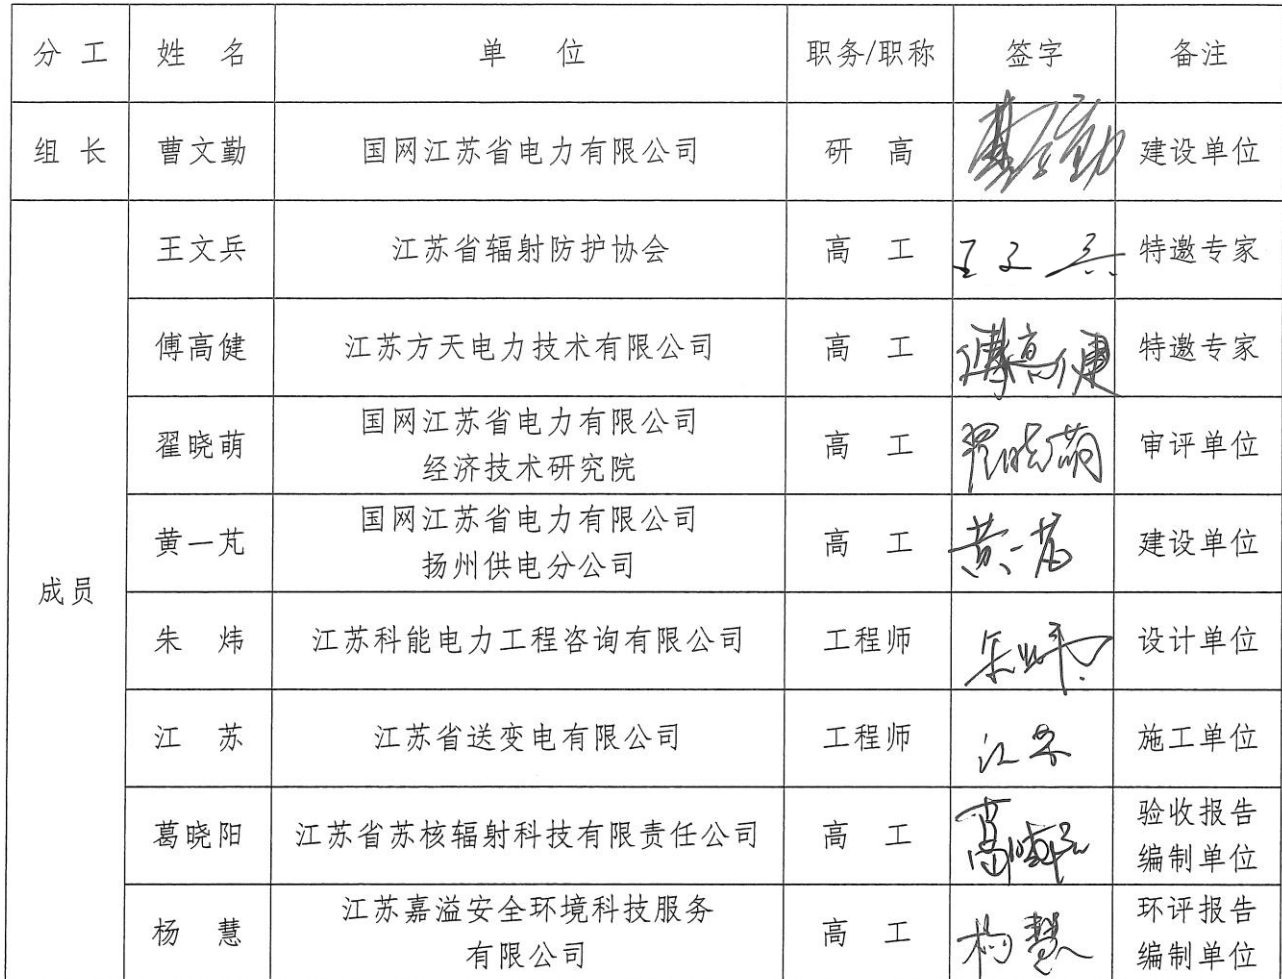 分 工 姓 名 单 位 职务/职称 签字 备注
组 长 曹文勤 国网江苏省电力有限公司 研 高 曹文勤 建设单位
成员
王文兵 江苏省辐射防护协会 高 工 王文兵 特邀专家
傅高健 江苏方天电力技术有限公司 高 工 傅高健 特邀专家
翟晓萌 国网江苏省电力有限公司
经济技术研究院 高 工 翟晓萌 审评单位
黄一芃 国网江苏省电力有限公司
扬州供电分公司 高 工 黄一芃 建设单位
朱 炜 江苏科能电力工程咨询有限公司 工程师 朱炜 设计单位
江 苏 江苏省送变电有限公司 工程师 江苏 施工单位
葛晓阳 江苏省苏核辐射科技有限责任公司 高 工 葛晓阳 验收报告
编制单位
杨 慧 江苏嘉溢安全环境科技服务
有限公司 高 工 杨慧 环评报告
编制单位